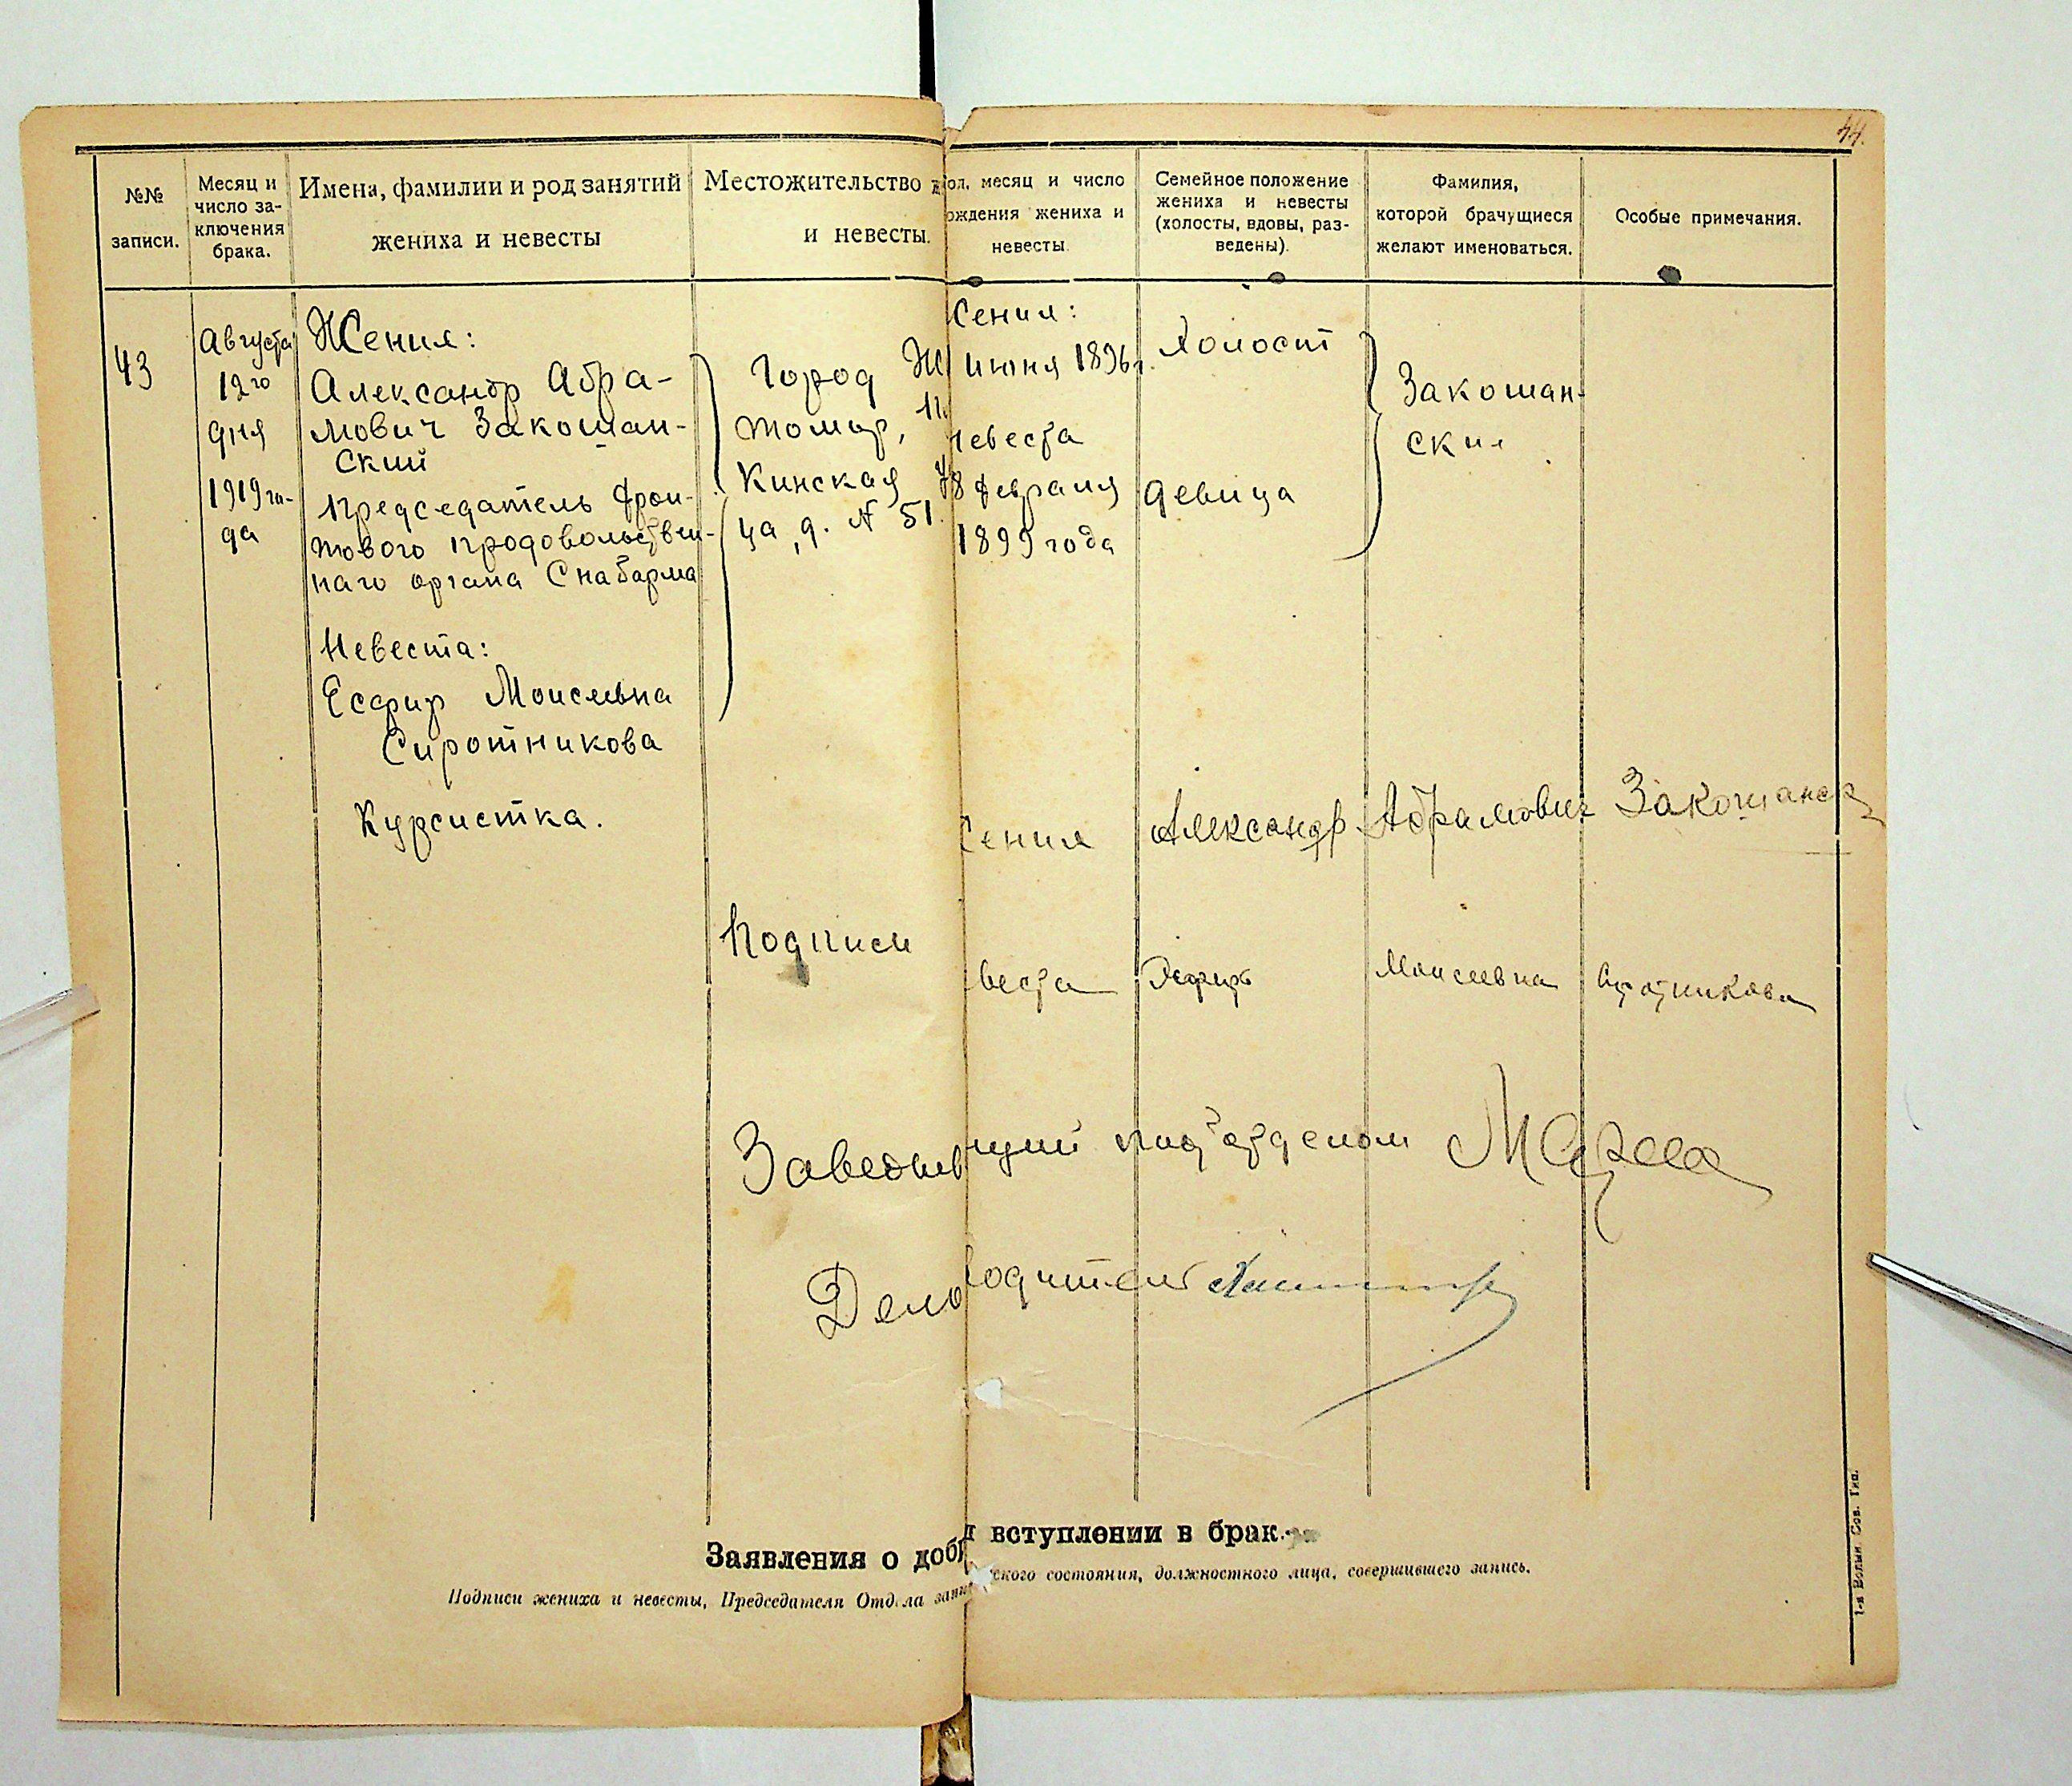 44.
№№ записи.
Месяц и число заключения брака.
Имена, фамилии и род занятий жениха и невесты
Местожительство
и невесты.
месяц и число
жениха и
невесты.
Семейное положение жениха и невесты (холосты, вдовы, разведены).
Фамилия, которой брачущиеся желают именоваться.
Особые примечания.
43
Августа
12го
дня
1919 го-
да
Жених:
Александр Абра-
мович Закошан-
ский
Председатель фрон-
тового продовольствен-
наго органа Снабарма
Невеста:
Есфир Моисеевна
Сиротникова
Курсистка.
Город Жи
томир,
Кинская
ца, д. № 51
июня 1896г.
8 февраля
1899 года
Холост
девица
Закошан-
ский
Александр Абрамович Закошанск
Подписи
Моисеевна Сиротникова
под'отделом
Заявления о
вступлении в брак.
Подписи жениха и невесты, Председателя Отдела
состояния, должностного лица, совершившего запись.
1-я Волын. Сов. Тип.